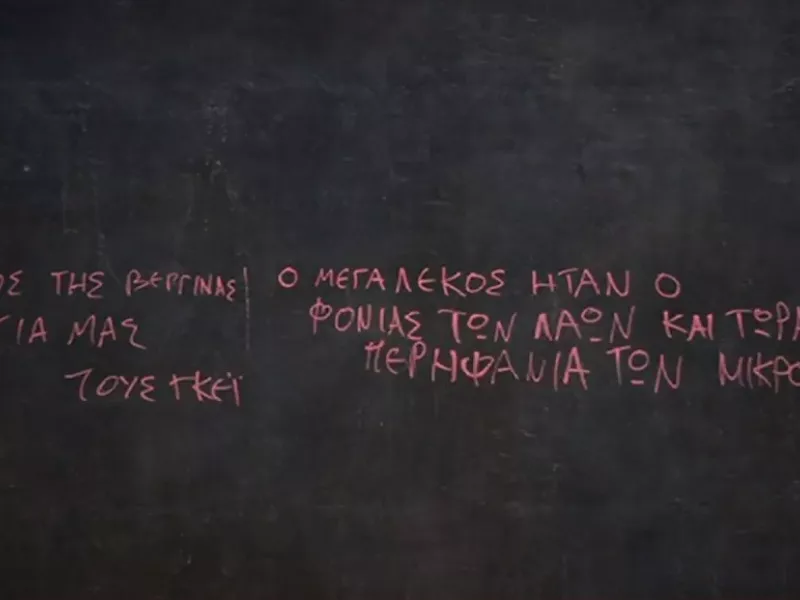 ΟΣ ΤΗΣ ΒΕΡΓΙΝΑΣ
ΓΙΑ ΜΑΣ
ΤΟΥΣ ΓΚΕΪ
Ο ΜΕΓΑΛΕΚΟΣ ΗΤΑΝ Ο
ΦΟΝΙΑΣ ΤΩΝ ΛΑΩΝ ΚΑΙ ΤΩΡΑ
ΠΕΡΗΦΑΝΙΑ ΤΩΝ ΜΙΚΡΟ